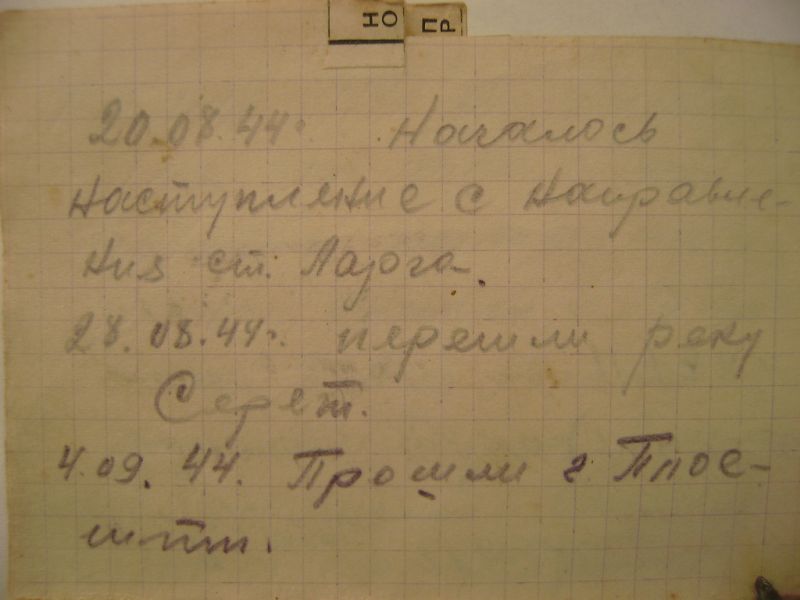 НО
ПР
20.08.44г. Началось
наступление с направле-
ния ст. Ларга.
28.08.44г. перешли реку
Серет.
4.09.44. Прошли г. Плое-
шти.